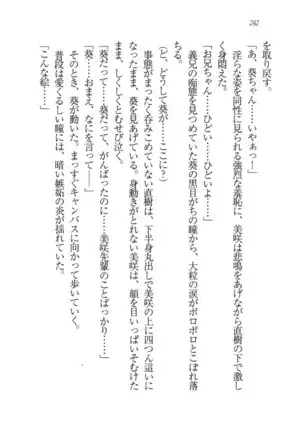 242
を取り戻す。
「あ、葵ちゃん……いやぁっ！」
淫らな姿を同性に見られる強烈な羞恥に、美咲は悲鳴をあげながら直樹の下で激し
く身悶えた。
「お兄ちゃん……ひどい……ひどいよ……」
義兄の痴態を見せつけられた葵の黒目がちの瞳から、大粒の涙がボロボロとこぼれ落
ちる。
（ど、どうして葵が……ここに？）
事態がまったく呑みこめていない直樹は、下半身丸出しで美咲の上に四つん這いに
なったまま動けない。身動きがとれない美咲は、顔を目いっぱいそむけた
まま、しくしくとむせび泣く。
「葵だって……葵だって、がんばったのに……美咲先輩のことばっかり……」
「葵……おまえ、なにを言って――」
そのとき、葵が動いた。まっすぐキャンバスに向かって歩いていく。
普段は愛くるしい瞳には、暗い嫉妬の炎が揺れていた。
「こんな絵……」